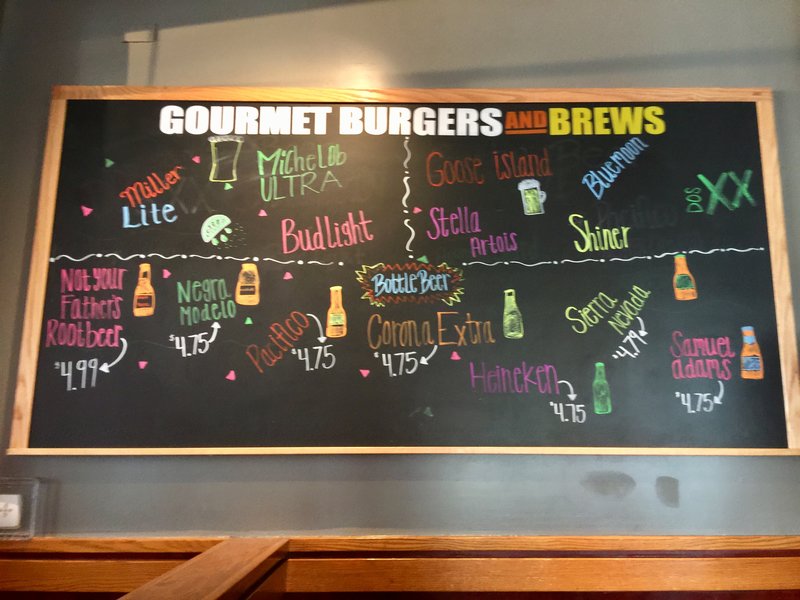 GOURMET BURGERS AND BREWS
Miller
Lite
Michelob
ULTRA
Budlight
Goose island
Bluemoon
DOS XX
Stella
Artois
Shiner
Bottle Beer
Not your
Father's
Rootbeer
$4.99
Negra
Modelo
$4.75
Pacifico
$4.75
Corona Extra
$4.75
Heineken
$4.75
Sierra
Nevada
$4.79
Samuel
adams
$4.75